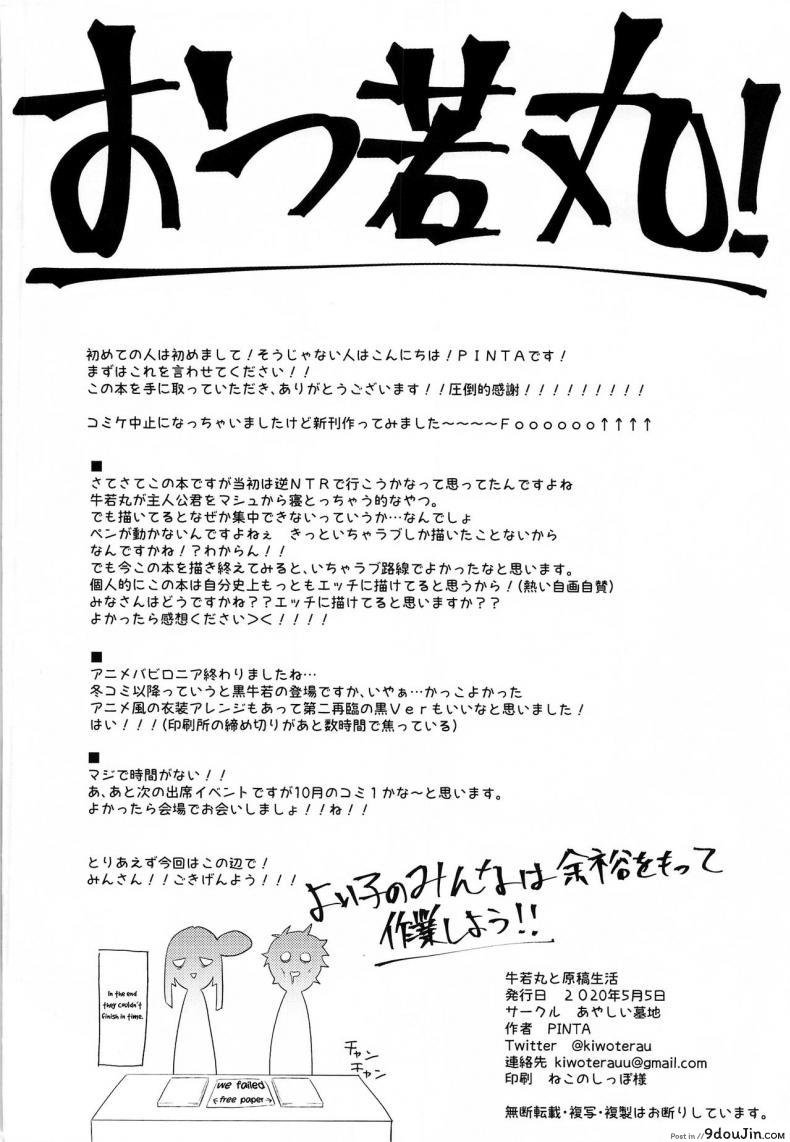 おつ若丸!
初めての人は初めまして！そうじゃない人はこんにちは！ＰＩＮＴＡです！
まずはこれを言わせてください！！
この本を手に取っていただき、ありがとうございます！！圧倒的感謝！！！！！！！！！
コミケ中止になっちゃいましたけど新刊作ってみました～～～～Ｆｏｏｏｏｏｏ↑↑↑↑
■
さてさてこの本ですが当初は逆ＮＴＲで行こうかなって思ってたんですよね
牛若丸が主人公君をマシュから寝とっちゃう的なやつ。
でも描いてるとなぜか集中できないっていうか…なんでしょ
ペンが動かないんですよねぇ　きっといちゃラブしか描いたことないから
なんですかね！？わからん！！
でも今この本を描き終えてみると、いちゃラブ路線でよかったなと思います。
個人的にこの本は自分史上もっともエッチに描けてると思うから！(熱い自画自賛)
みなさんはどうですかね？？エッチに描けてると思いますか？？
よかったら感想ください＞＜！！！！
■
アニメバビロニア終わりましたね…
冬コミ以降っていうと黒牛若の登場ですか、いやぁ…かっこよかった
アニメ風の衣装アレンジもあって第二再臨の黒Ｖｅｒもいいなと思いました！
はい！！！(印刷所の締め切りがあと数時間で焦っている)
■
マジで時間がない！！
あ、あと次の出席イベントですが10月のコミ１かな～と思います。
よかったら会場でお会いしましょ！！ね！！
とりあえず今回はこの辺で！
みんさん！！ごきげんよう！！！
よい子のみんなは余裕をもって
作業しよう!!
In the end
they couldn't
finish in time.
チャン
チャン
we failed
<free paper>
牛若丸と原稿生活
発行日　２０２０年５月５日
サークル　あやしい墓地
作者　PINTA
Twitter　@kiwoterau
連絡先 kiwoterauu@gmail.com
印刷　ねこのしっぽ様
無断転載・複写・複製はお断りしています。
Post in // 9douJin.com